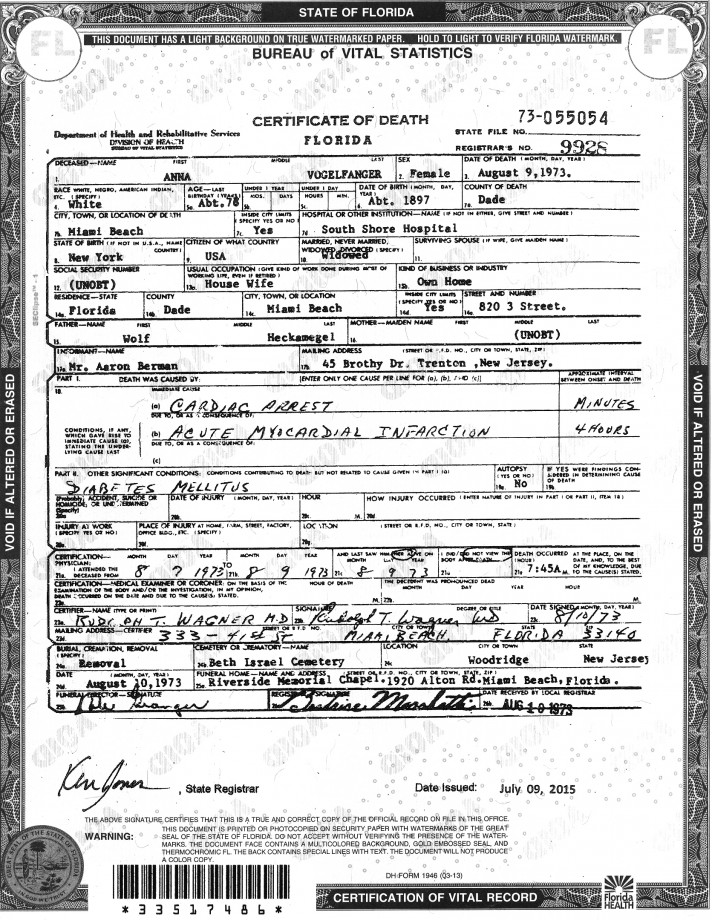 STATE OF FLORIDA
THIS DOCUMENT HAS A LIGHT BACKGROUND ON TRUE WATERMARKED PAPER. HOLD TO LIGHT TO VERIFY FLORIDA WATERMARK.
BUREAU of VITAL STATISTICS
CERTIFICATE OF DEATH
FLORIDA
73-055054
Department of Health and Rehabilitative Services
DIVISION OF HEALTH
BUREAU OF VITAL STATISTICS
STATE FILE NO.
REGISTRAR'S NO. 9928
DECEASED—NAME FIRST MIDDLE LAST SEX DATE OF DEATH (MONTH, DAY, YEAR)
1. ANNA VOGELFANGER 2. Female 3. August 9,1973.
RACE WHITE, NEGRO, AMERICAN INDIAN, ETC. (SPECIFY) AGE—LAST BIRTHDAY (YEARS) UNDER 1 YEAR MOS. DAYS UNDER 1 DAY HOURS MIN. DATE OF BIRTH (MONTH, DAY, YEAR) COUNTY OF DEATH
4. White 5a. Abt.78 5b. 5c. 6. Abt. 1897 7a. Dade
CITY, TOWN, OR LOCATION OF DEATH INSIDE CITY LIMITS (SPECIFY YES OR NO) HOSPITAL OR OTHER INSTITUTION—NAME (IF NOT IN EITHER, GIVE STREET AND NUMBER)
7b. Miami Beach 7c. Yes 7d. South Shore Hospital
STATE OF BIRTH (IF NOT IN U.S.A., NAME COUNTRY) CITIZEN OF WHAT COUNTRY MARRIED, NEVER MARRIED, WIDOWED, DIVORCED (SPECIFY) SURVIVING SPOUSE (IF WIFE, GIVE MAIDEN NAME)
8. New York 9. USA 10. Widowed 11.
SOCIAL SECURITY NUMBER USUAL OCCUPATION (GIVE KIND OF WORK DONE DURING MOST OF WORKING LIFE, EVEN IF RETIRED) KIND OF BUSINESS OR INDUSTRY
12. (UNOBT) 13a. House Wife 13b. Own Home
RESIDENCE—STATE COUNTY CITY, TOWN, OR LOCATION INSIDE CITY LIMITS (SPECIFY YES OR NO) STREET AND NUMBER
14a. Florida 14b. Dade 14c. Miami Beach 14d. Yes 14e. 820 3 Street.
FATHER—NAME FIRST MIDDLE LAST MOTHER—MAIDEN NAME FIRST MIDDLE LAST
15. Wolf Heckamegel 16. (UNOBT)
INFORMANT—NAME MAILING ADDRESS (STREET OR R.F.D. NO., CITY OR TOWN, STATE, ZIP)
17a. Mr. Aaron Berman 17b. 45 Brothy Dr. Trenton ,New Jersey.
PART I. DEATH WAS CAUSED BY: [ENTER ONLY ONE CAUSE PER LINE FOR (a), (b), AND (c)] APPROXIMATE INTERVAL BETWEEN ONSET AND DEATH
18. IMMEDIATE CAUSE
(a) CARDIAC ARREST MINUTES
DUE TO, OR AS A CONSEQUENCE OF:
CONDITIONS, IF ANY, WHICH GAVE RISE TO IMMEDIATE CAUSE (a), STATING THE UNDERLYING CAUSE LAST
(b) ACUTE MYOCARDIAL INFARCTION 4 HOURS
DUE TO, OR AS A CONSEQUENCE OF:
(c)
PART II. OTHER SIGNIFICANT CONDITIONS: CONDITIONS CONTRIBUTING TO DEATH BUT NOT RELATED TO CAUSE GIVEN IN PART I (a) AUTOPSY (YES OR NO) IF YES WERE FINDINGS CONSIDERED IN DETERMINING CAUSE OF DEATH
DIABETES MELLITUS 19a. No 19b.
(Probably) ACCIDENT, SUICIDE OR HOMICIDE, OR UNDETERMINED (Specify) DATE OF INJURY (MONTH, DAY, YEAR) HOUR HOW INJURY OCCURRED (ENTER NATURE OF INJURY IN PART I OR PART II, ITEM 18)
20a. 20b. 20c. M. 20d.
INJURY AT WORK (SPECIFY YES OR NO) PLACE OF INJURY AT HOME, FARM, STREET, FACTORY, OFFICE BLDG., ETC. (SPECIFY) LOCATION (STREET OR R.F.D. NO., CITY OR TOWN, STATE)
20e. 20f. 20g.
CERTIFICATION—PHYSICIAN: MONTH DAY YEAR TO MONTH DAY YEAR AND LAST SAW HIM/HER ALIVE ON MONTH DAY YEAR I DID/DID NOT VIEW THE BODY AFTER DEATH DEATH OCCURRED AT THE PLACE, ON THE DATE, AND, TO THE BEST OF MY KNOWLEDGE, DUE TO THE CAUSE(S) STATED.
21a. I ATTENDED THE DECEASED FROM 8 7 1973 21b. 8 9 1973 21c. 8 9 73 21d. 21e. 7:45A M.
CERTIFICATION—MEDICAL EXAMINER OR CORONER: ON THE BASIS OF THE EXAMINATION OF THE BODY AND/OR THE INVESTIGATION, IN MY OPINION, DEATH OCCURRED ON THE DATE AND DUE TO THE CAUSE(S) STATED. HOUR OF DEATH THE DECEDENT WAS PRONOUNCED DEAD MONTH DAY YEAR HOUR
22a. M. 22b. M.
CERTIFIER—NAME (TYPE OR PRINT) SIGNATURE DEGREE OR TITLE DATE SIGNED (MONTH, DAY, YEAR)
23a. RUDOLPH T. WAGNER M.D 23b. Rudolph T. Wagner MD 23c. 8/10/73
MAILING ADDRESS—CERTIFIER STREET OR R.F.D. NO. CITY OR TOWN STATE ZIP
23d. 333-41st St MIAMI BEACH, FLORIDA 33140
BURIAL, CREMATION, REMOVAL (SPECIFY) CEMETERY OR CREMATORY—NAME LOCATION CITY OR TOWN STATE
24a. Removal 24b. Beth Israel Cemetery 24c. Woodridge New Jersey
DATE (MONTH, DAY, YEAR) FUNERAL HOME—NAME AND ADDRESS (STREET OR R.F.D. NO., CITY OR TOWN, STATE, ZIP)
24d. August 10,1973 25a. Riverside Memorial Chapel.1920 Alton Rd.Miami Beach,Florida.
FUNERAL DIRECTOR—SIGNATURE REGISTRAR—SIGNATURE DATE RECEIVED BY LOCAL REGISTRAR
25b. 26a. 26b. AUG 10 1973
SEClipse™-1
VOID IF ALTERED OR ERASED
VOID IF ALTERED OR ERASED
Ken Jones , State Registrar
Date Issued: July 09, 2015
THE ABOVE SIGNATURE CERTIFIES THAT THIS IS A TRUE AND CORRECT COPY OF THE OFFICIAL RECORD ON FILE IN THIS OFFICE.
WARNING: THIS DOCUMENT IS PRINTED OR PHOTOCOPIED ON SECURITY PAPER WITH WATERMARKS OF THE GREAT
SEAL OF THE STATE OF FLORIDA. DO NOT ACCEPT WITHOUT VERIFYING THE PRESENCE OF THE WATER-
MARKS. THE DOCUMENT FACE CONTAINS A MULTICOLORED BACKGROUND, GOLD EMBOSSED SEAL, AND
THERMOCHROMIC FL. THE BACK CONTAINS SPECIAL LINES WITH TEXT. THE DOCUMENT WILL NOT PRODUCE
A COLOR COPY.
DH FORM 1946 (03-13)
*33517486*
CERTIFICATION OF VITAL RECORD
Florida
HEALTH